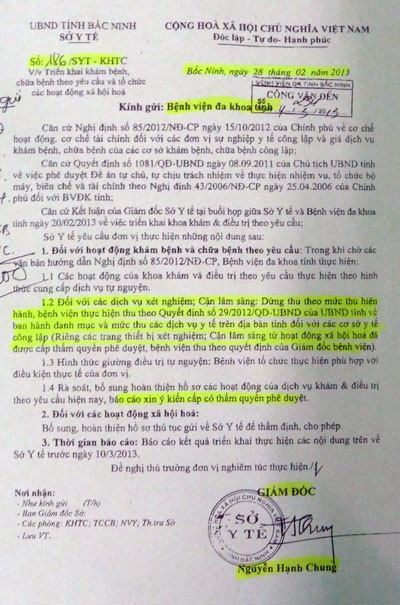 UBND TỈNH BẮC NINH
SỞ Y TẾ
CỘNG HOÀ XÃ HỘI CHỦ NGHĨA VIỆT NAM
Độc lập - Tự do - Hạnh phúc
Số: 186/SYT - KHTC
V/v Triển khai khám bệnh,
chữa bệnh theo yêu cầu và tổ chức
các hoạt động xã hội hoá
Bắc Ninh, ngày 28 tháng 02 năm 2013
CÔNG VĂN ĐẾN
Kính gửi: Bệnh viện đa khoa tỉnh
Căn cứ Nghị định số 85/2012/NĐ-CP ngày 15/10/2012 của Chính phủ về cơ chế
hoạt động, cơ chế tài chính đối với các đơn vị sự nghiệp y tế công lập và giá dịch vụ
khám bệnh, chữa bệnh của các cơ sở khám bệnh, chữa bệnh công lập;
Căn cứ Quyết định số 1081/QĐ-UBND ngày 08.09.2011 của Chủ tịch UBND tỉnh
về việc phê duyệt Đề án tự chủ, tự chịu trách nhiệm về thực hiện nhiệm vụ, tổ chức bộ
máy, biên chế và tài chính theo Nghị định 43/2006/NĐ-CP ngày 25.04.2006 của Chính
phủ đối với BVĐK tỉnh;
Căn cứ Kết luận của Giám đốc Sở Y tế tại buổi họp giữa Sở Y tế và Bệnh viện đa khoa
tỉnh ngày 20/02/2013 về việc triển khai khoa khám & điều trị theo yêu cầu;
Sở Y tế yêu cầu đơn vị thực hiện những nội dung sau:
1. Đối với hoạt động khám bệnh và chữa bệnh theo yêu cầu: Trong khi chờ các
văn bản hướng dẫn Nghị định số 85/2012/NĐ-CP, Bệnh viện đa khoa tỉnh thực hiện:
1.1 Các hoạt động của khoa khám và điều trị theo yêu cầu thực hiện theo hình
thức cung cấp dịch vụ tự nguyện.
1.2 Đối với các dịch vụ xét nghiệm; Cận lâm sàng: Dừng thu theo mức thu hiện
hành, bệnh viện thực hiện thu theo Quyết định số 29/2012/QĐ-UBND của UBND tỉnh về
ban hành danh mục và mức thu các dịch vụ y tế trên địa bàn tỉnh đối với các cơ sở y tế
công lập (Riêng các trang thiết bị xét nghiệm; Cận lâm sàng từ hoạt động xã hội hoá đã
được cấp thẩm quyền phê duyệt, bệnh viện thu theo quyết định của Giám đốc bệnh viện).
1.3 Hình thức giường điều trị tự nguyện: Bệnh viện tổ chức thực hiện phù hợp với
điều kiện thực tế của đơn vị.
1.4 Rà soát, bổ sung hoàn thiện hồ sơ các hoạt động của dịch vụ khám & điều trị
theo yêu cầu hiện nay, báo cáo xin ý kiến cấp có thẩm quyền phê duyệt.
2. Đối với các hoạt động xã hội hóa:
Bổ sung, hoàn thiện hồ sơ thủ tục gửi về Sở Y tế để thẩm định, cho phép
3. Thời gian báo cáo: Báo cáo kết quả triển khai thực hiện các nội dung trên về
Sở Y tế trước ngày 10/3/2013.
Đề nghị thủ trưởng đơn vị nghiêm túc thực hiện./.
Nơi nhận:
- Như kính gửi (T/h)
- Ban Giám đốc Sở;
- Các phòng: KHTC; TCCB; NVY; Th.tra Sở
- Lưu VT.
GIÁM ĐỐC
SỞ
Y TẾ
Nguyễn Hạnh Chung